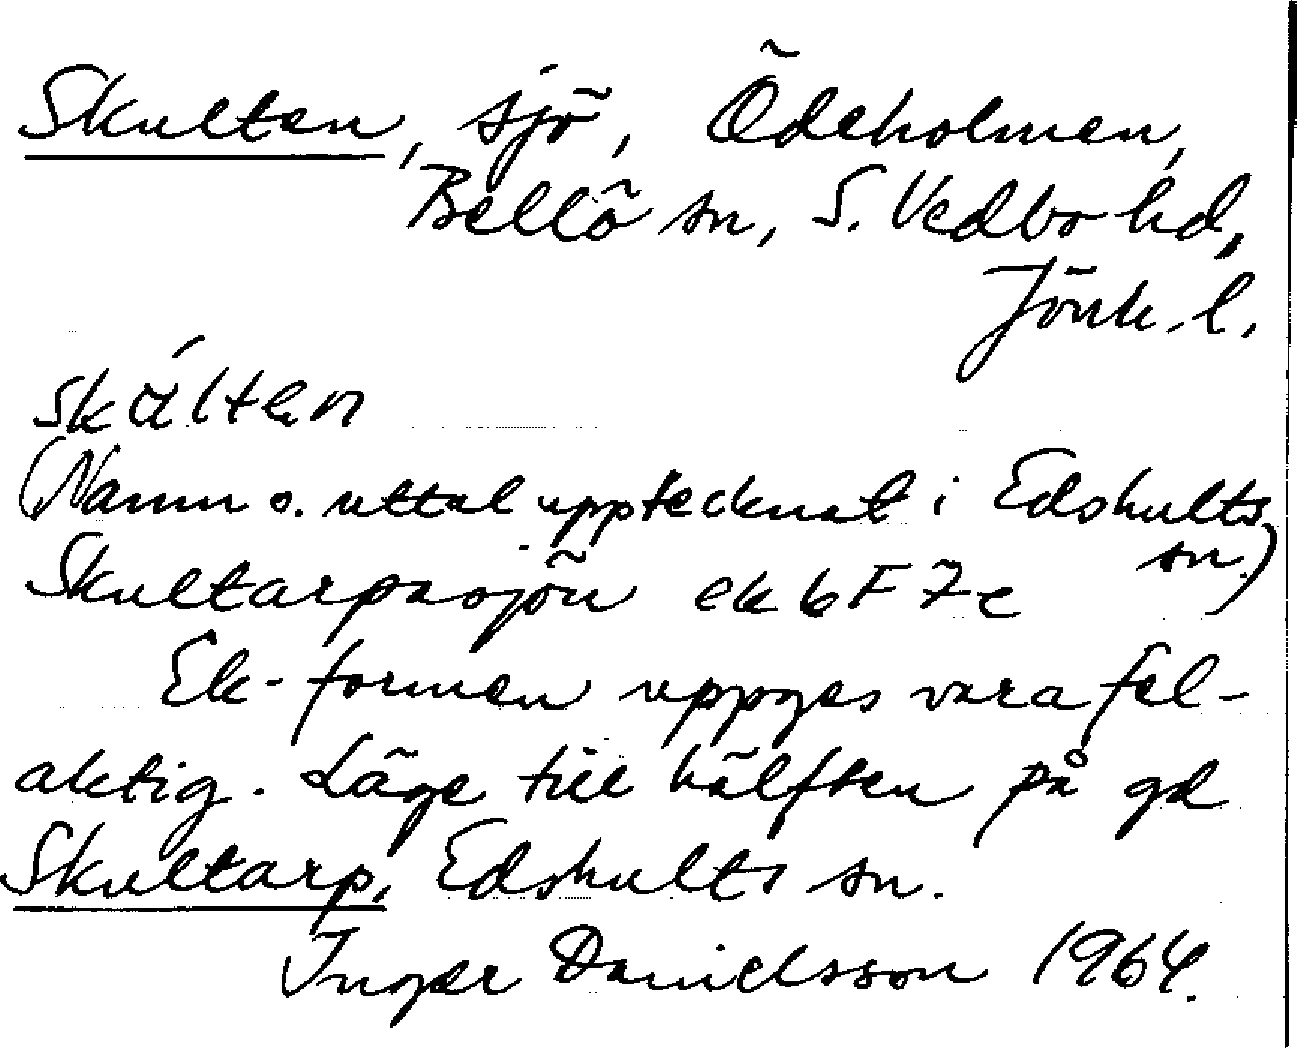 Skulten, sjö, Ödeholmen,
Bellö sn, S. Vedbo hd,
Jönk. l.
skálten
(Namn o. uttal upptecknat i Edshults
sn.)
Skultarpasjön ek 6F 7e
Ek-formen uppges vara fel-
aktig. Läge till hälften på gd
Skultarp, Edshults sn.
Inger Danielsson 1964.